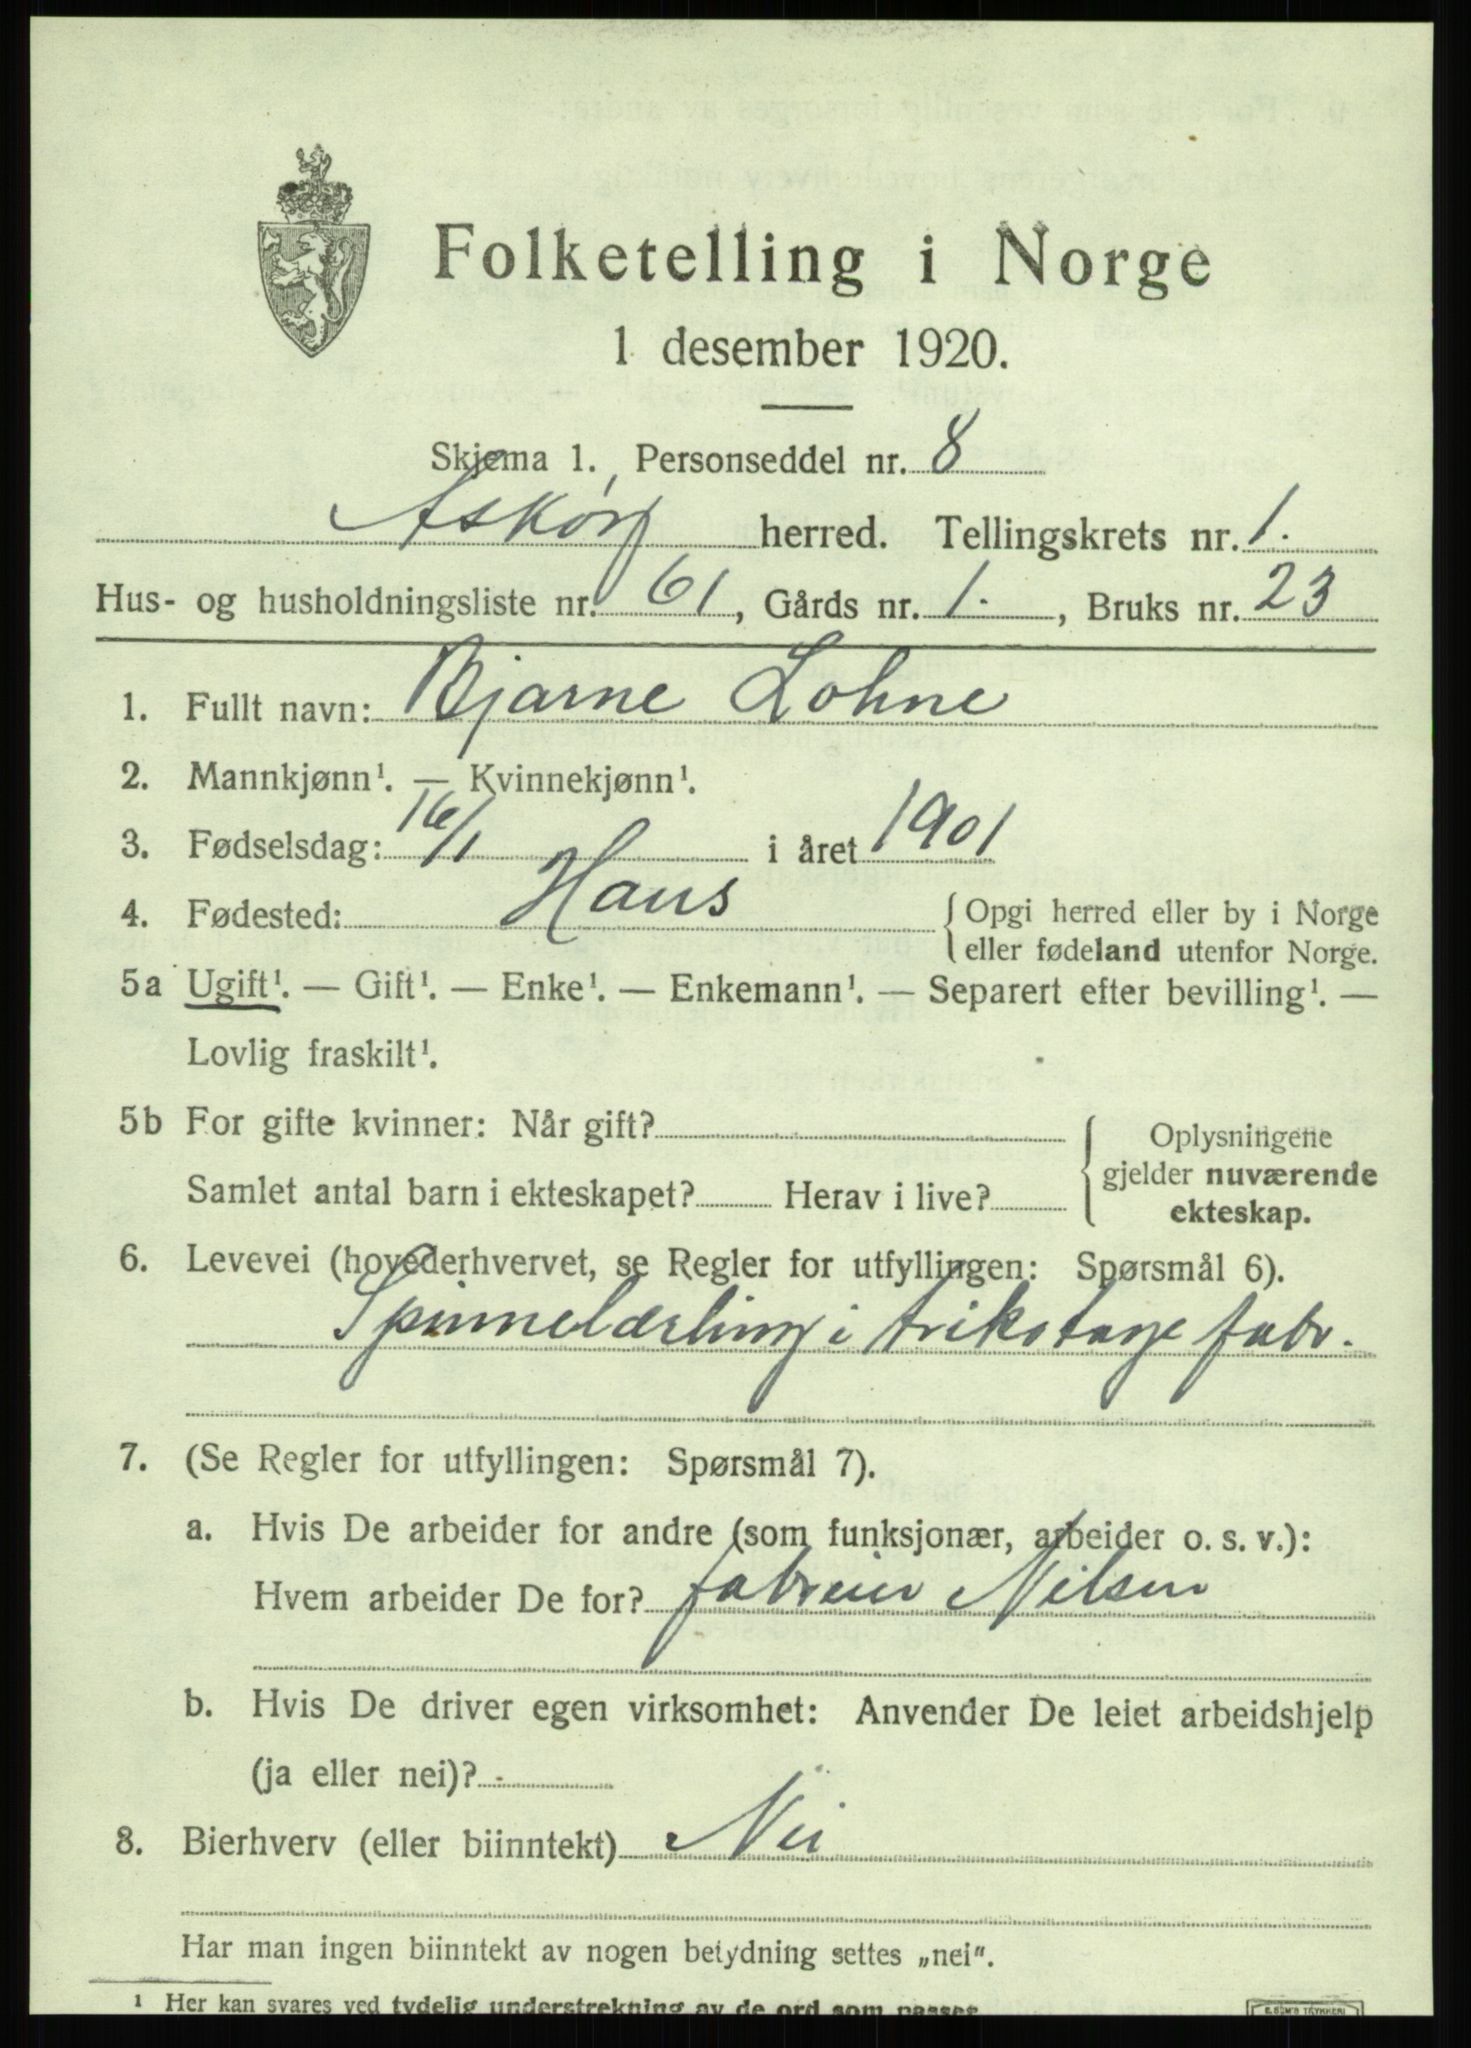 Folketelling i Norge
1 desember 1920.
Skjema 1. Personseddel nr. 8
Askøy herred. Tellingskrets nr. 1.
Hus- og husholdningsliste nr. 61, Gårds nr. 1., Bruks nr. 23
1. Fullt navn: Bjarne Lohne
2. Mannkjønn¹. — Kvinnekjønn¹.
3. Fødselsdag: 16/1 i året 1901
4. Fødested: Haus { Opgi herred eller by i Norge
eller fødeland utenfor Norge.
5a Ugift¹. — Gift¹. — Enke¹. — Enkemann¹. — Separert efter bevilling¹. —
Lovlig fraskilt¹.
5b For gifte kvinner: Når gift? { Oplysningene
gjelder nuværende
ekteskap.
Samlet antal barn i ekteskapet? Herav i live?
6. Levevei (hovederhvervet, se Regler for utfyllingen: Spørsmål 6).
Spinnelærling i trikotage fabr.
7. (Se Regler for utfyllingen: Spørsmål 7).
a. Hvis De arbeider for andre (som funksjonær, arbeider o. s. v.):
Hvem arbeider De for? Nilsen
b. Hvis De driver egen virksomhet: Anvender De leiet arbeidshjelp
(ja eller nei)?
8. Bierhverv (eller biinntekt) Nei
Har man ingen biinntekt av nogen betydning settes „nei".
¹ Her kan svares ved tydelig understrekning av de ord som passer.
E. SEM'S TRYKKERI